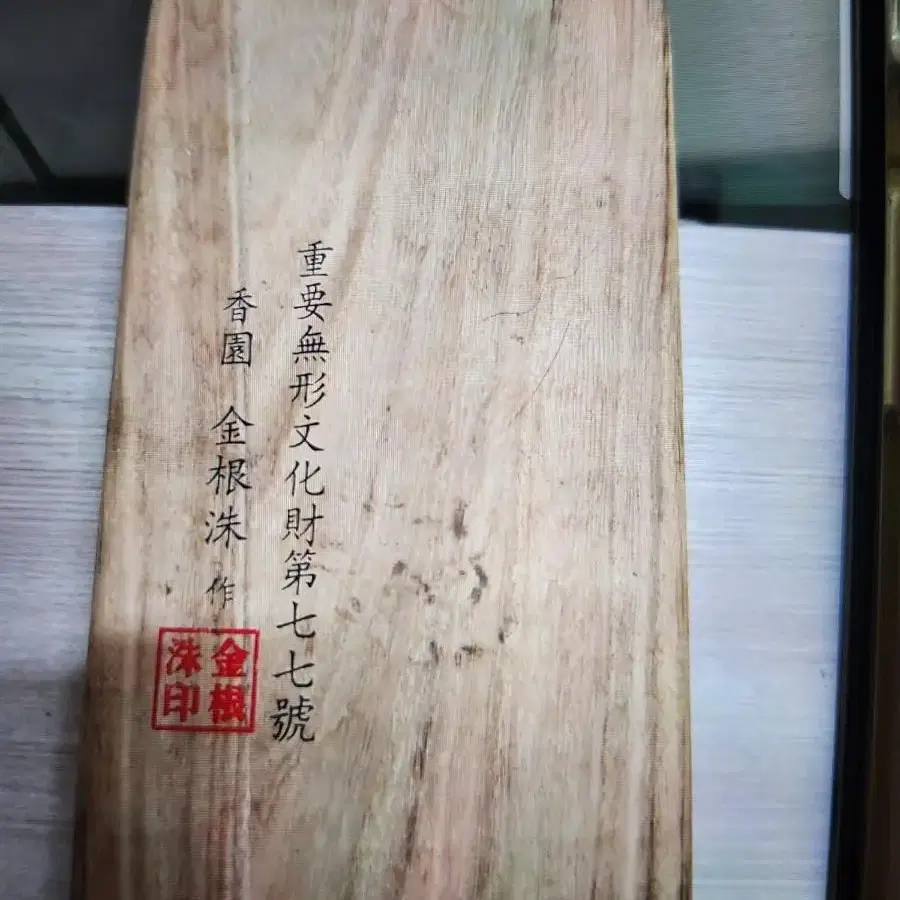 重要無形文化財第七七號
香園 金根洙 作
金根
洙印